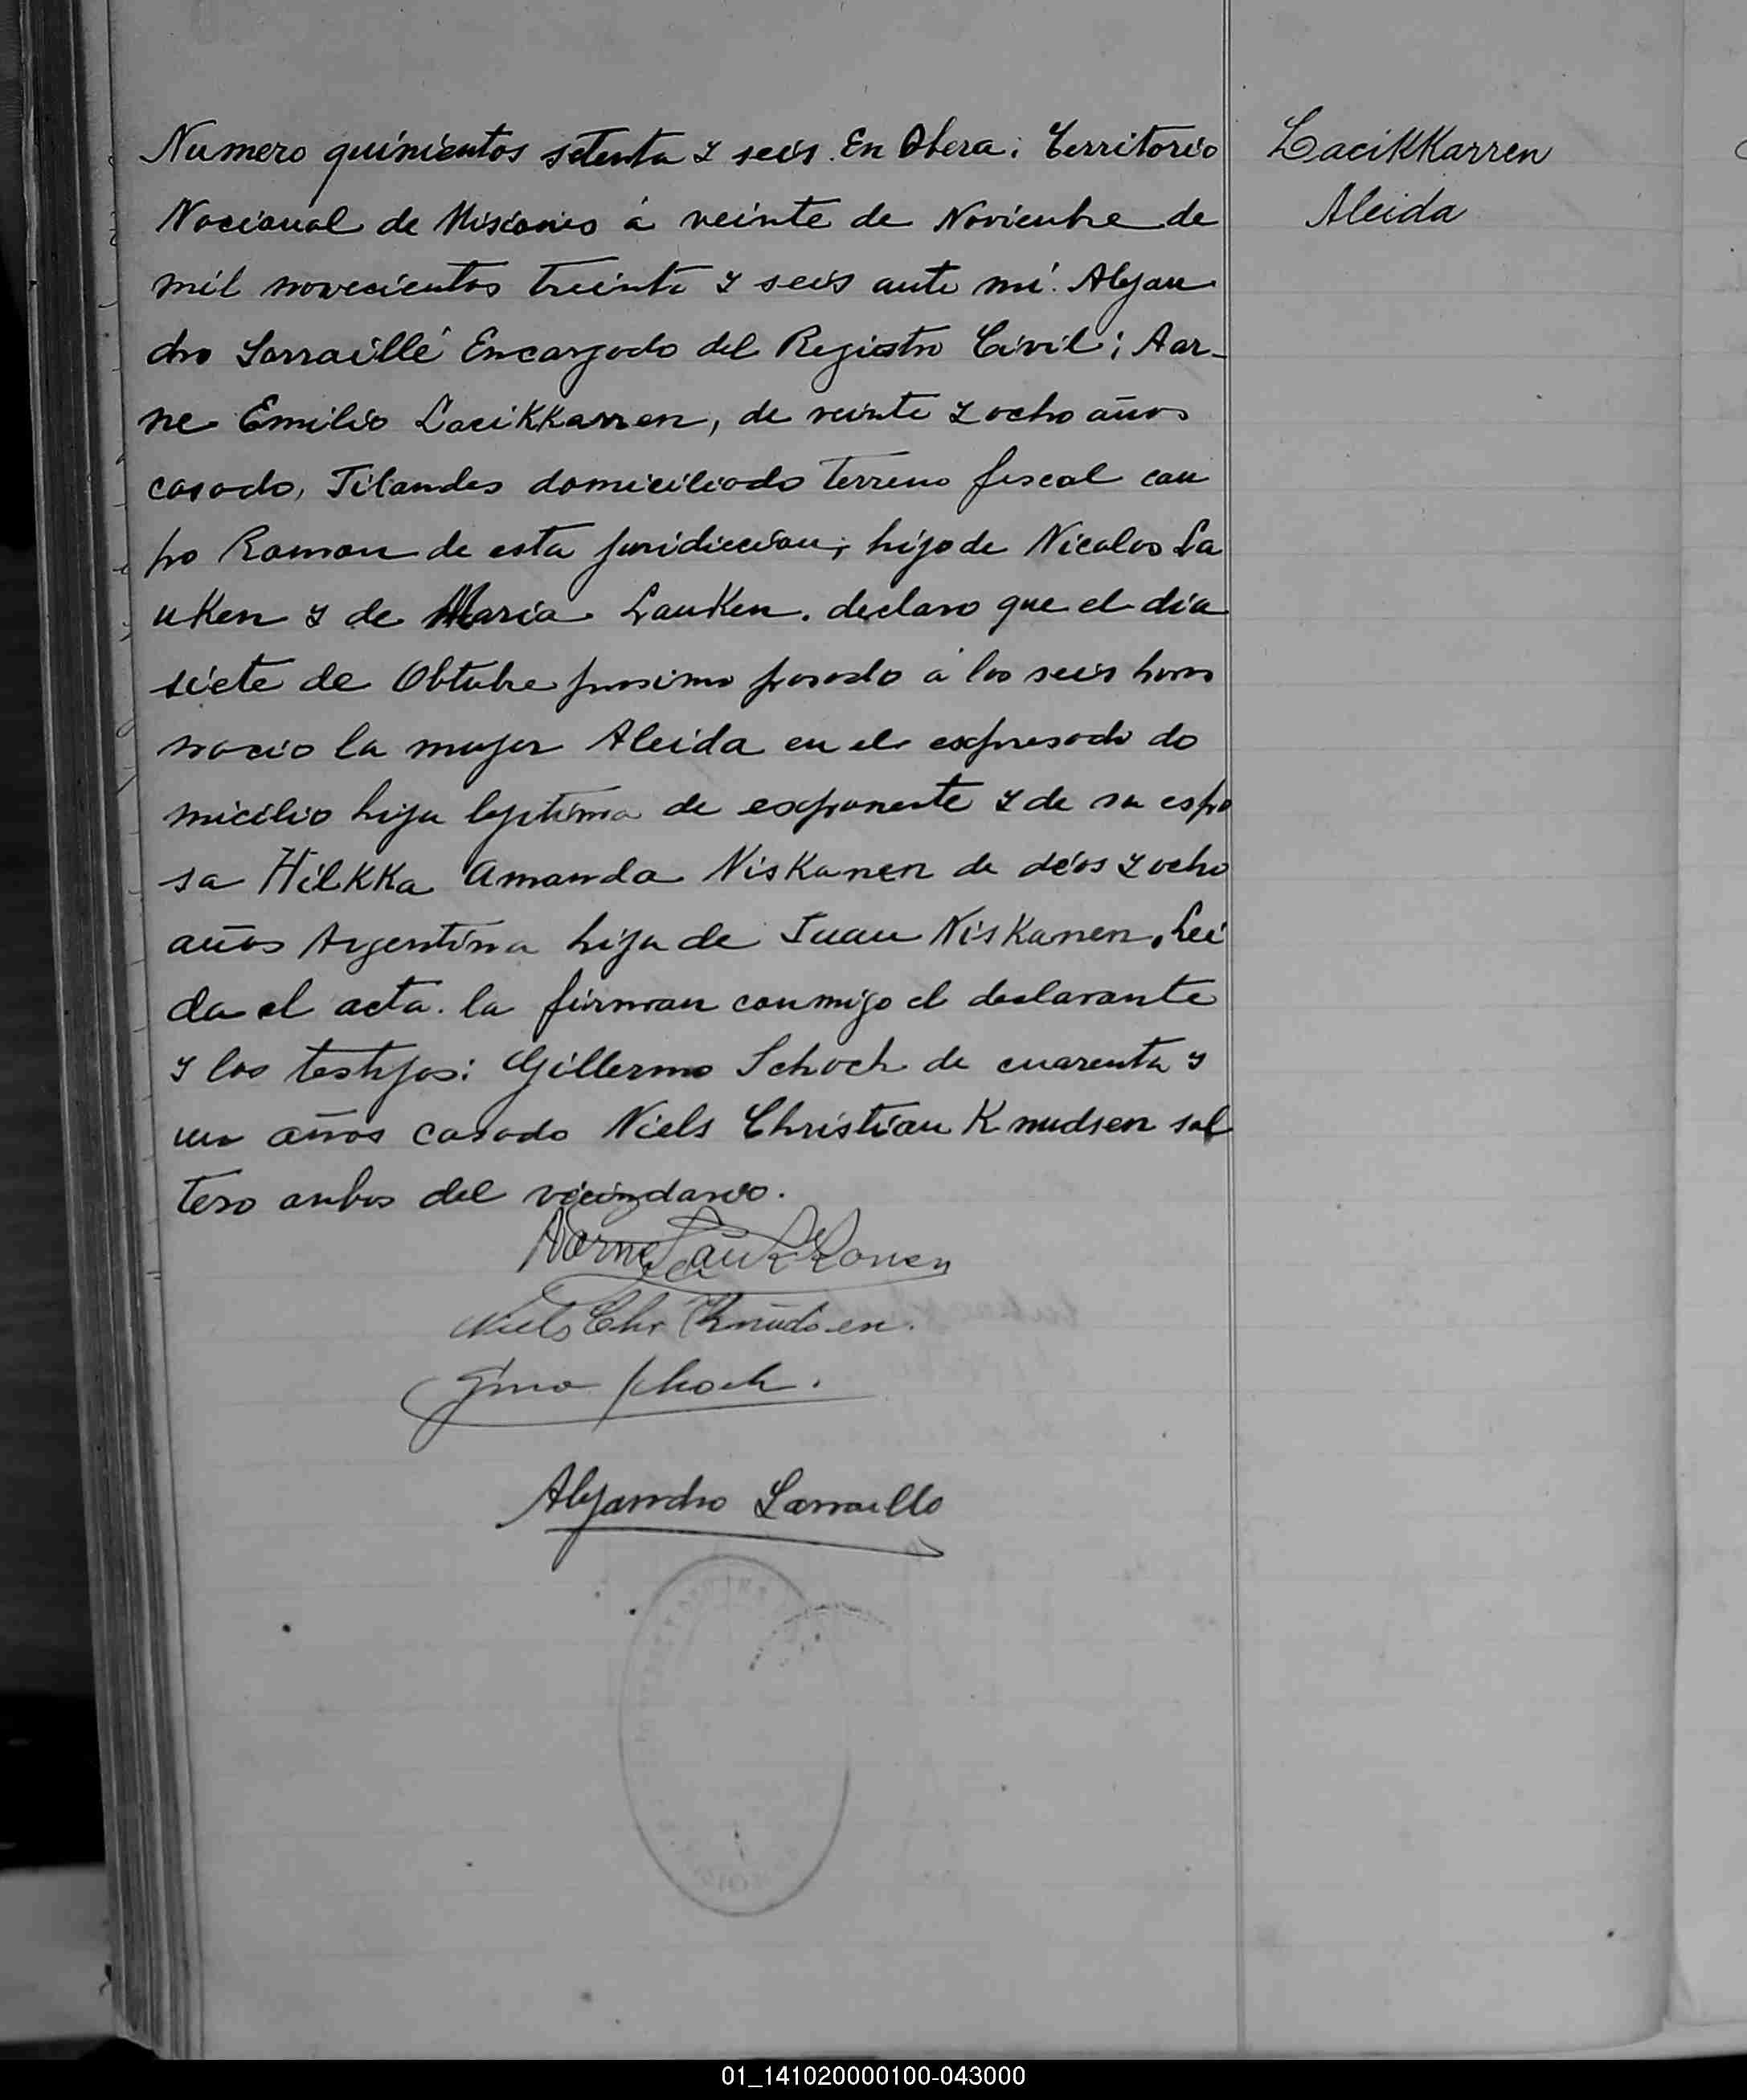 Numero quinientos setenta y seis. En Obera; Territorio
Nacional de Misiones á veinte de Noviembre de
mil novecientos treinta y seis ante mí. Alejan
dro Larraillé Encargado del Registro Civil; Aar-
ne Emilio Lacikkarren, de veinte y ocho años
casado, Filandes domiciliado terreno fiscal cam
po Ramon de esta juridiccion; hijo de Nicolas La
uken y de Maria Lauken. declaro que el dia
siete de Obtubre prosimo pasado á las seis horas
nacio la mujer Aleida en el expresado do
micilio hija lejitima de exponente y de su espo
sa Hilkka Amanda Niskanen de dios y ocho
años Argentina hija de Juan Niskanen. Lei
da el acta. la firman conmigo el declarante
y los testijos: Gillermo Schoch de cuarenta y
un años casado Niels Christian Knudsen sol
tero anbos del vecindario.
Aarne Laukkonen
Niels Chr Knudsen.
Gmo Schoch.
Alejandro Larraille
Lacikkarren
Aleida
01_141020000100-043000